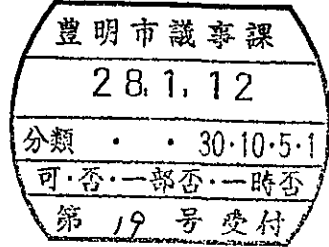 豊明市議事課
28.1.12
分類 ・ ・ 30・10・5・1
可・否・一部否・一時否
第 19 号 受付